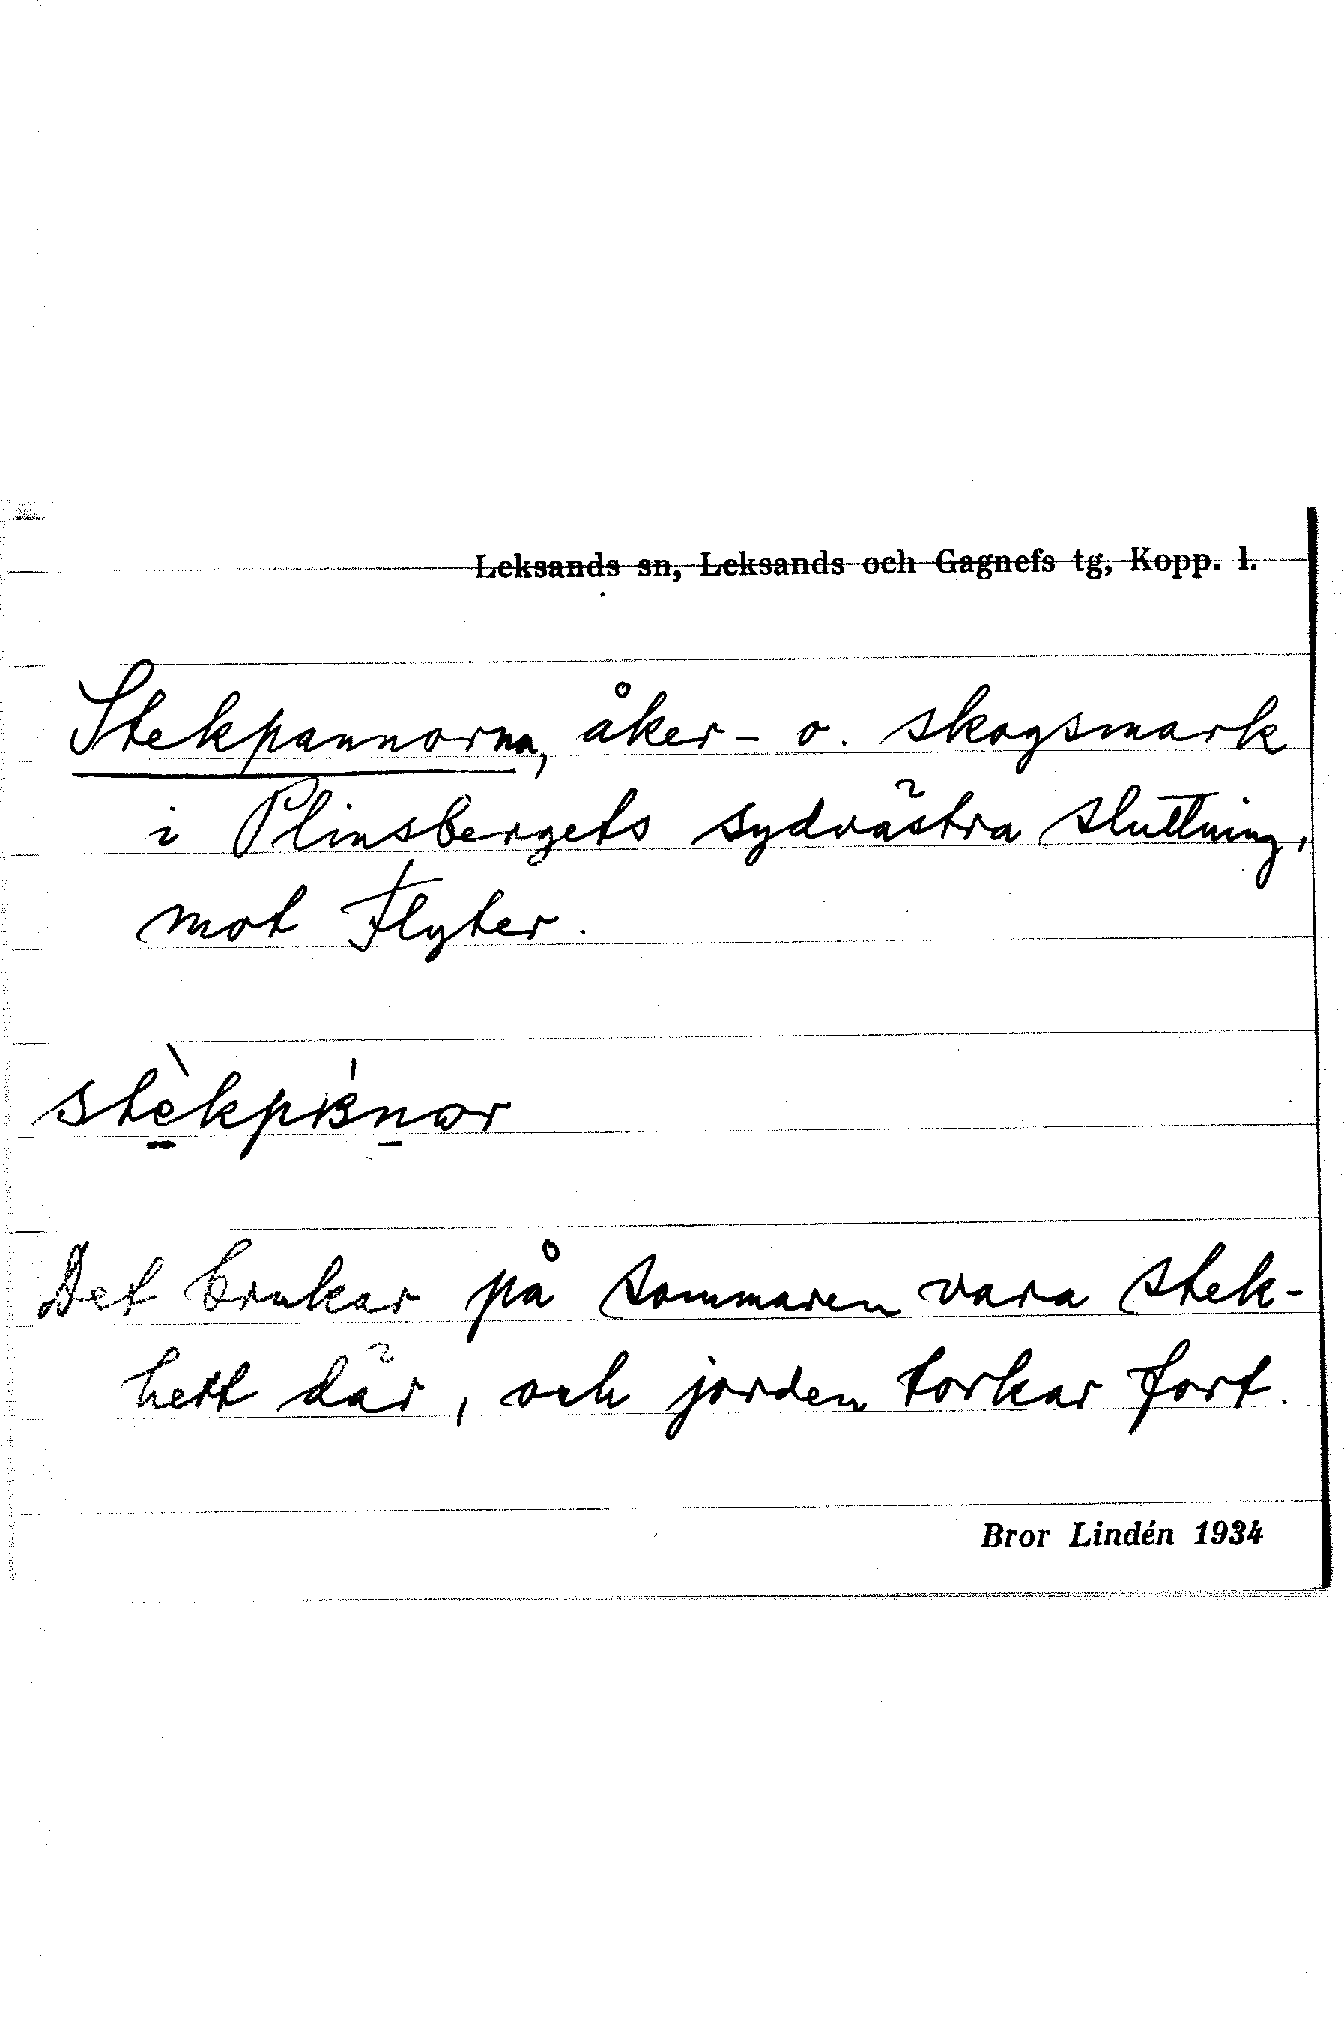 Leksands sn, Leksands och Gagnefs tg, Kopp. l.
Stekpannorna, åker- o. skogsmark
i Plinsbergets sydvästra sluttning,
mot Flyter.
Det brukar på sommaren vara stek-
hett där, och jorden torkar fort.
Bror Lindén 1934